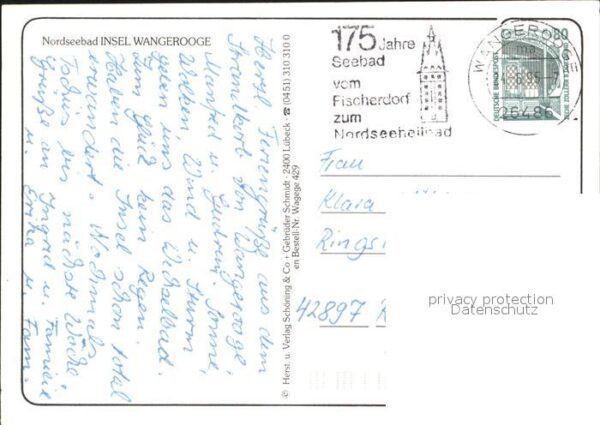 Nordseebad INSEL WANGEROOGE
Herzl. Feriengrüße aus dem
Strandkorb von Wangerooge,
Manfred u. Gudrun. Sonne,
Wolken, Wind u. Sturm
geben uns das Wechselbad.
Zum Glück kein Regen.
Haben die Insel schon total
erwandert. Nochmals
Tschüs bis nächste Woche
Grüße an Ingrid u. Familie
u. Erika u. Fam.
© Herst. u. Verlag Schöning & Co + Gebrüder Schmidt · 2400 Lübeck · ☎ (0451) 310 310 0
en Bestell-Nr. Wagege 429
175 Jahre
Seebad
vom
Fischerdorf
zum
Nordseeheilbad
WANGEROOG
26486
80
DEUTSCHE BUNDESPOST
Frau
Klara
Rings
42897 R
privacy protection
Datenschutz